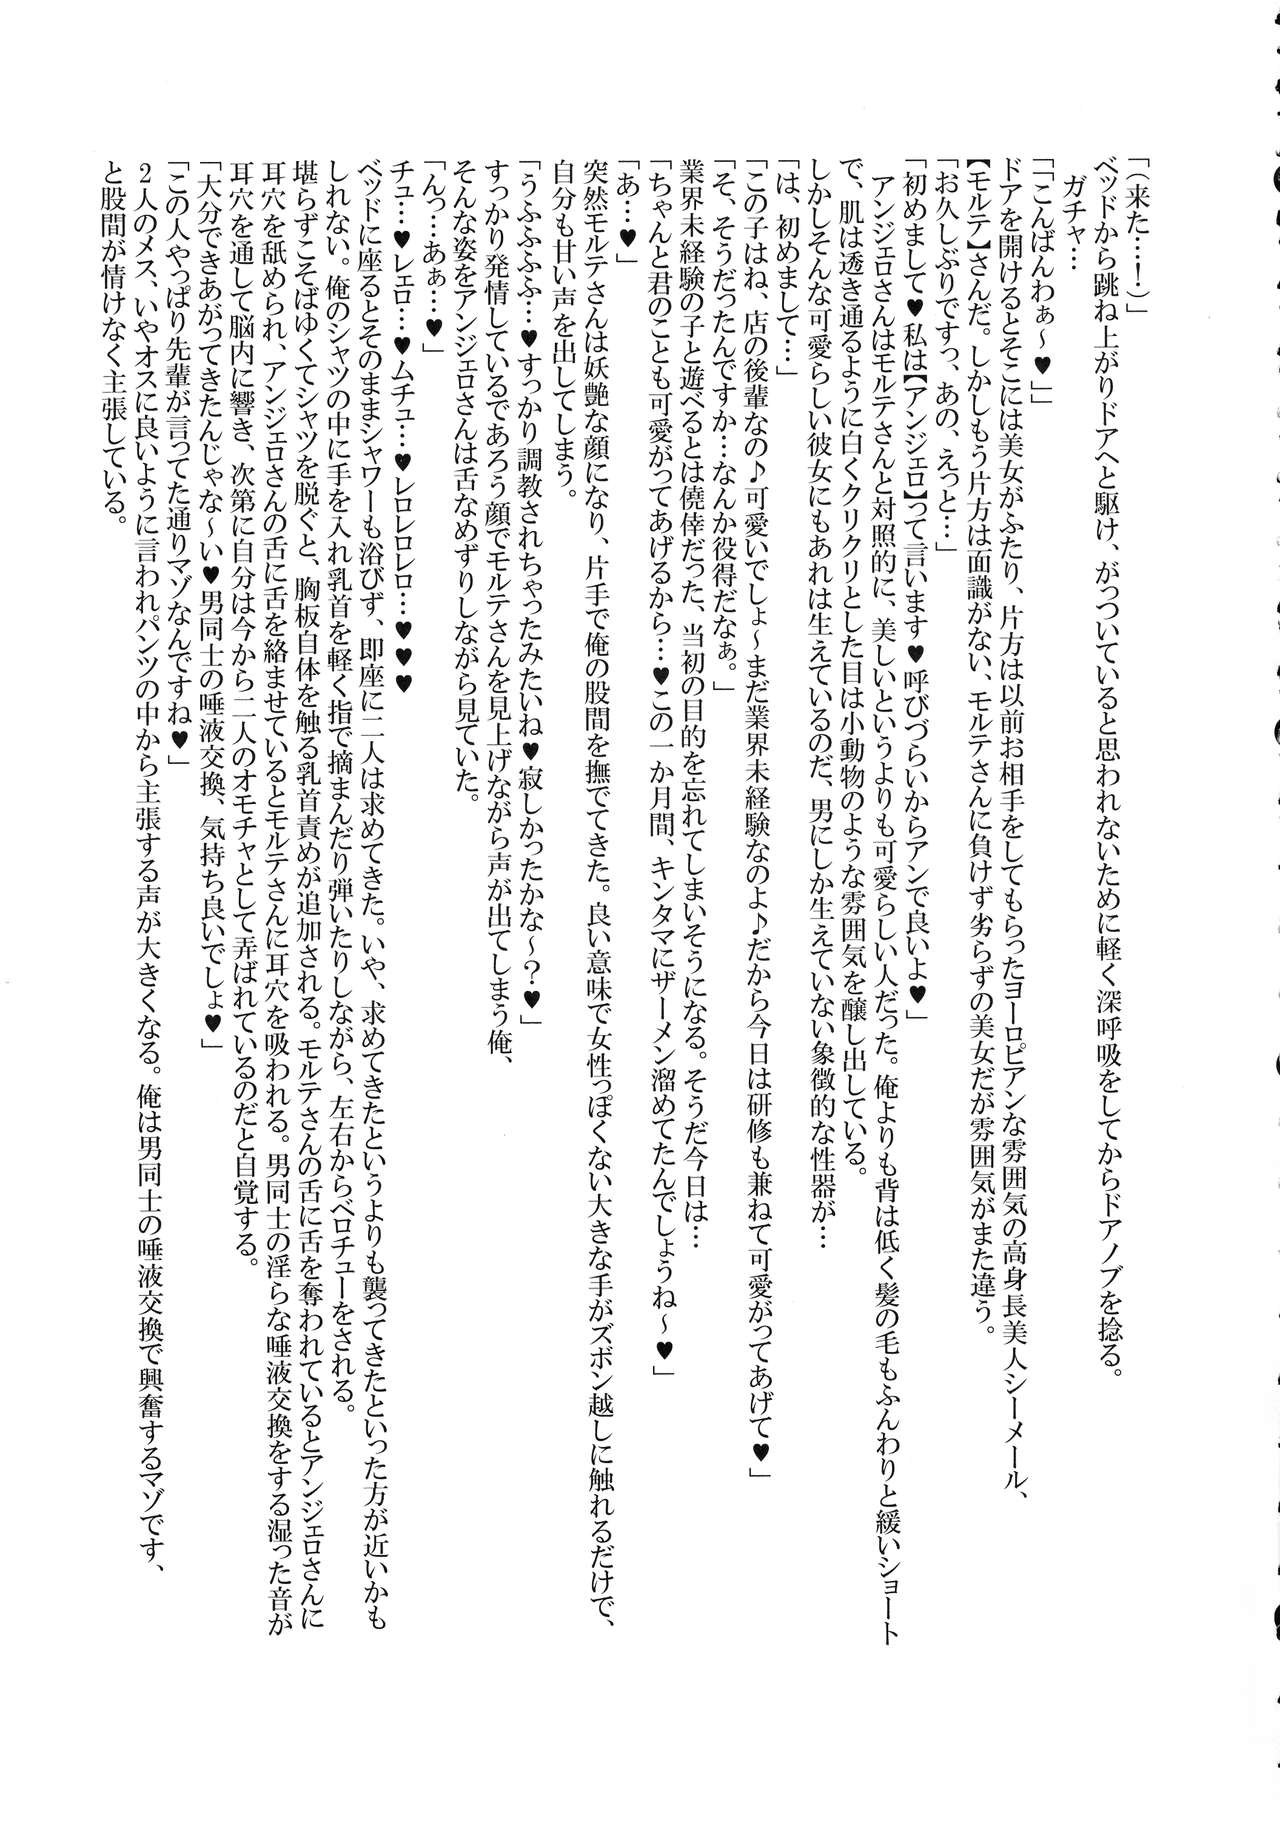 「(来た…！)」
ベッドから跳ね上がりドアへと駆け、がっついていると思われないために軽く深呼吸をしてからドアノブを捻る。
ガチャ…
「こんばんわぁ～♥」
ドアを開けるとそこには美女がふたり、片方は以前お相手をしてもらったヨーロピアンな雰囲気の高身長美人シーメール、
【モルテ】さんだ。しかしもう片方は面識がない、モルテさんに負けず劣らずの美女だが雰囲気がまた違う。
「お久しぶりですっ、あの、えっと…」
「初めまして♥私は【アンジェロ】って言います♥呼びづらいからアンで良いよ♥」
アンジェロさんはモルテさんと対照的に、美しいというよりも可愛らしい人だった。俺よりも背は低く髪の毛もふんわりと緩いショート
で、肌は透き通るように白くクリクリとした目は小動物のような雰囲気を醸し出している。
しかしそんな可愛らしい彼女にもあれは生えているのだ、男にしか生えていない象徴的な性器が…
「は、初めまして…」
「この子はね、店の後輩なの♪可愛いでしょ～まだ業界未経験なのよ♪だから今日は研修も兼ねて可愛がってあげて♥」
「そ、そうだったんですか…なんか役得だなぁ。」
業界未経験の子と遊べるとは僥倖だった、当初の目的を忘れてしまいそうになる。そうだ今日は…
「ちゃんと君のことも可愛がってあげるから…♥この一か月間、キンタマにザーメン溜めてたんでしょうね～♥」
「あ…♥」
突然モルテさんは妖艶な顔になり、片手で俺の股間を撫でてきた。良い意味で女性っぽくない大きな手がズボン越しに触れるだけで、
自分も甘い声を出してしまう。
「うふふふふ…♥すっかり調教されちゃったみたいね♥寂しかったかな～？♥」
すっかり発情しているであろう顔でモルテさんを見上げながら声が出てしまう俺、
そんな姿をアンジェロさんは舌なめずりしながら見ていた。
「んっ…あぁ…♥」
チュ…♥レェロ…♥ムチュ…♥レロレロレロ…♥♥♥
ベッドに座るとそのままシャワーも浴びず、即座に二人は求めてきた。いや、求めてきたというよりも襲ってきたといった方が近いかも
しれない。俺のシャツの中に手を入れ乳首を軽く指で摘まんだり弾いたりしながら、左右からベロチューをされる。
堪らずこそばゆくてシャツを脱ぐと、胸板自体を触る乳首責めが追加される。モルテさんの舌に舌を奪われているとアンジェロさんに
耳穴を舐められ、アンジェロさんの舌に舌を絡ませているとモルテさんに耳穴を吸われる。男同士の淫らな唾液交換をする湿った音が
耳穴を通して脳内に響き、次第に自分は今から二人のオモチャとして弄ばれているのだと自覚する。
「大分できあがってきたんじゃな～い♥男同士の唾液交換、気持ち良いでしょ♥」
「この人やっぱり先輩が言ってた通りマゾなんですね♥」
2人のメス、いやオスに良いように言われパンツの中から主張する声が大きくなる。俺は男同士の唾液交換で興奮するマゾです、
と股間が情けなく主張している。